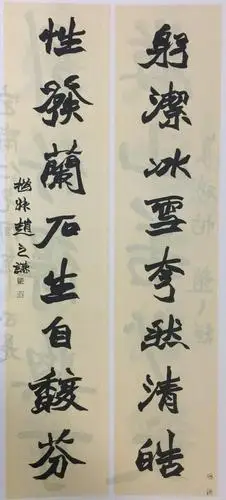 躬潔冰雪夸然清皓
性發蘭石生自馥芬
撝叔趙之謙